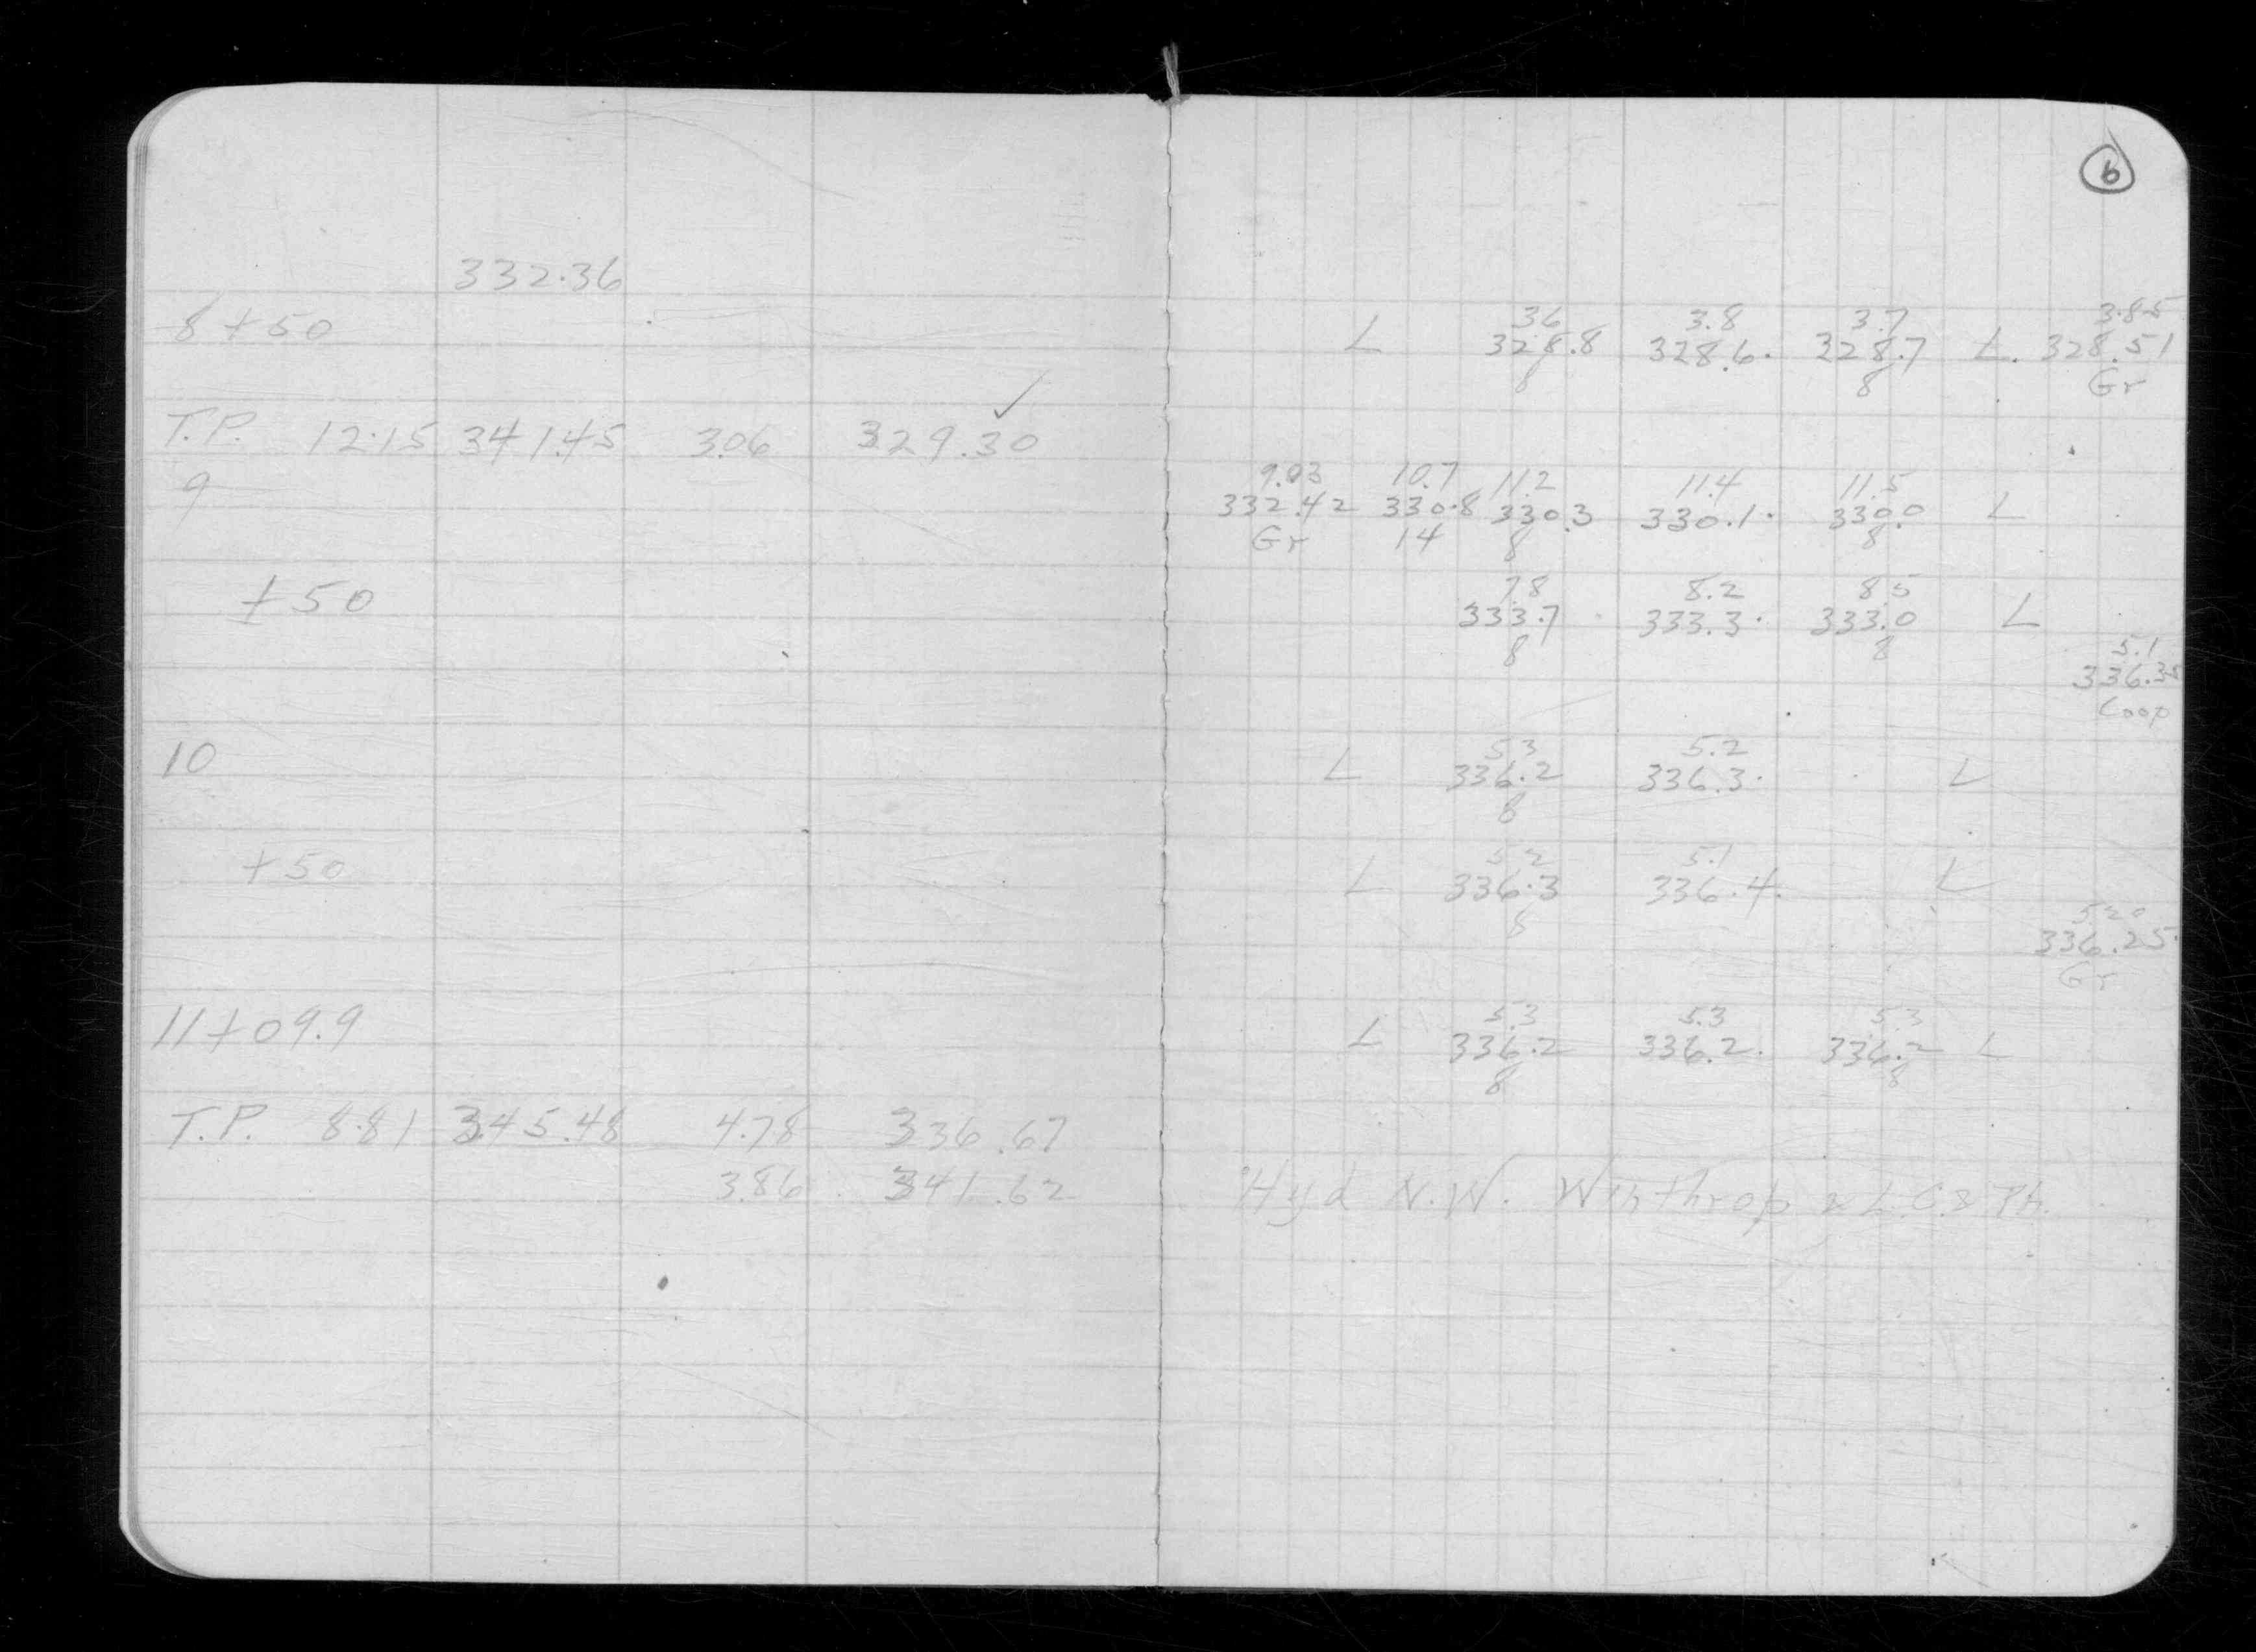 6
332.36
8+50
L 3.6 3.8 3.7 3.85
328.8 328.6. 328.7 L. 328.51
8 8 Gr
T.P. 12.15 341.45 3.06 329.30 ✓
9
9.03 10.7 11.2 11.4 11.5
332.42 330.8 330.3 330.1. 330.0 L
Gr 14 8 8
+50
7.8 8.2 8.5
333.7 333.3. 333.0 L
8 8
5.1
336.35
Coop
10
5.3 5.2
L 336.2 336.3. L
8
+50
5.2 5.1
L 336.3 336.4. L
8
5.20
336.25
Gr
11+09.9
5.3 5.3 5.3
L 336.2 336.2. 336.2 L
8 8
T.P. 8.81 345.48 4.78 336.67
3.86 341.62 Hyd N.W. Winthrop &